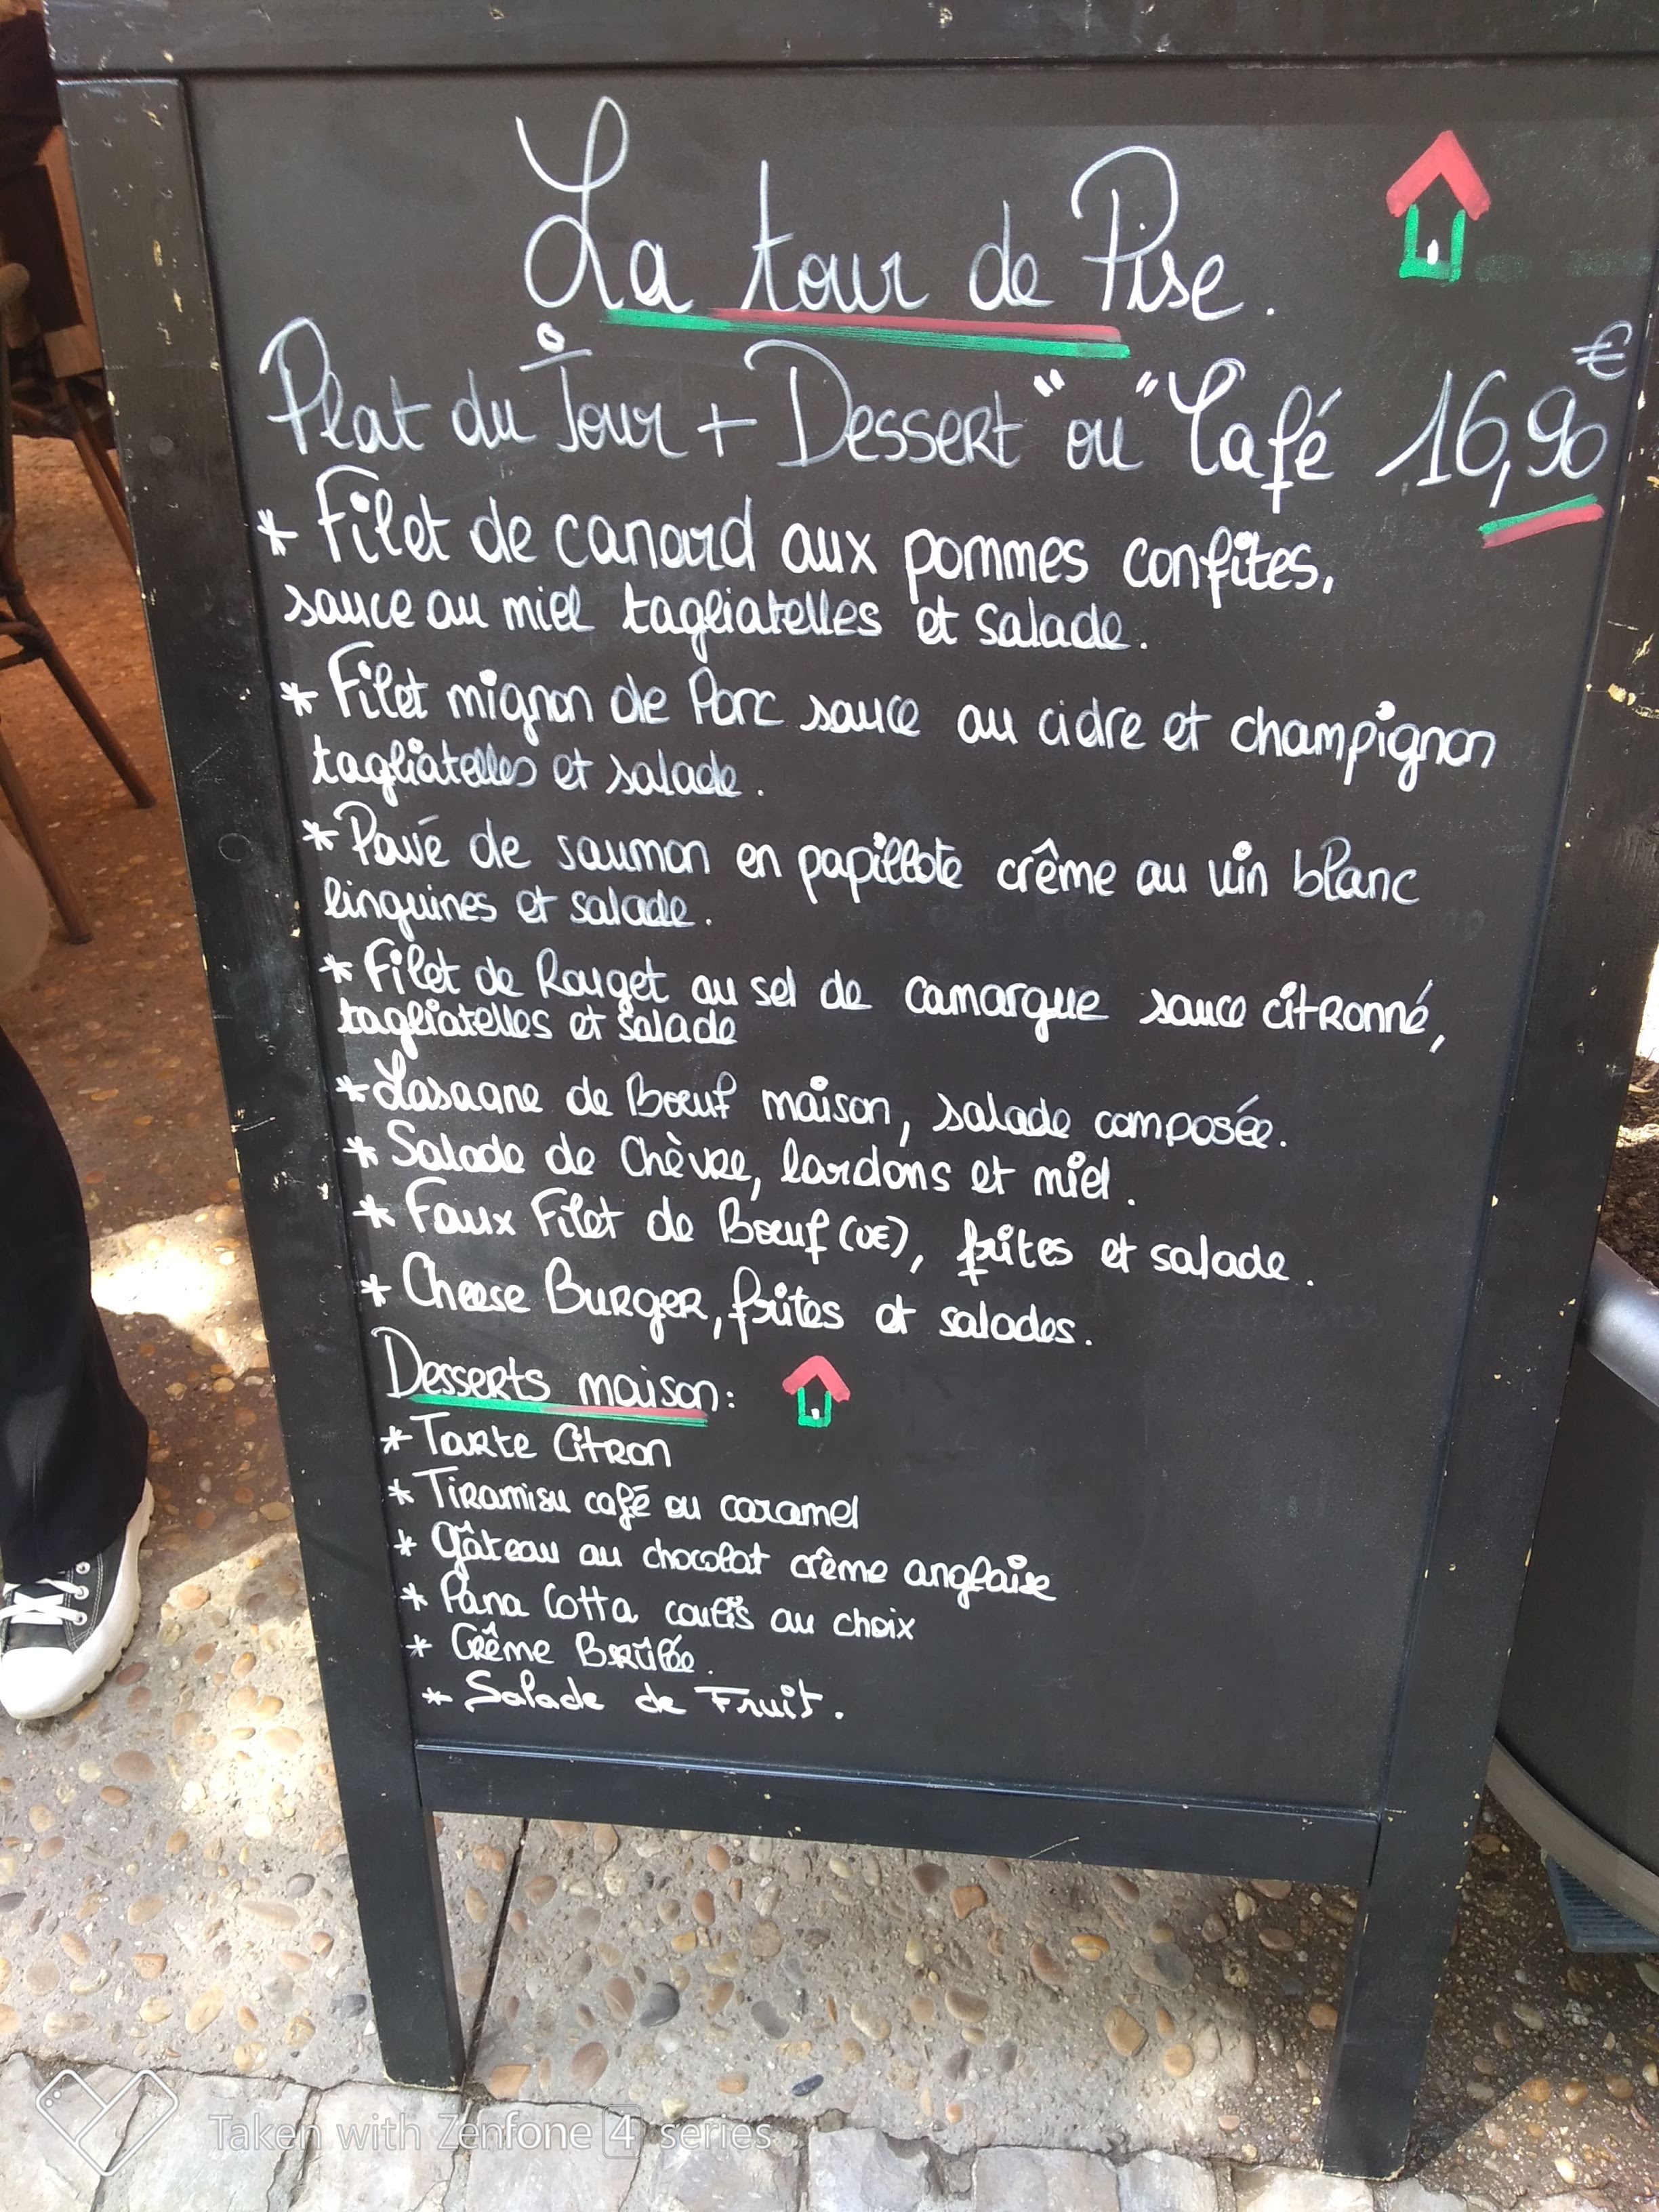 La tour de Pise.
Plat du Jour + Dessert "ou" Café 16,90€
* Filet de canard aux pommes confites,
sauce au miel tagliatelles et salade.
* Filet mignon de Porc sauce au cidre et champignon
tagliatelles et salade.
* Pavé de saumon en papillote crême au vin blanc
linguines et salade.
* Filet de Rouget au sel de camargue sauce citronné,
tagliatelles et salade
* Lasagne de Boeuf maison, salade composée.
* Salade de Chèvre, lardons et miel.
* Faux Filet de Boeuf (UE), frites et salade.
* Cheese Burger, frites et salades.
Desserts maison:
* Tarte Citron
* Tiramisu café ou caramel
* Gâteau au chocolat crême anglaise
* Pana Cotta coulis au choix
* Crême Brûlée.
* Salade de Fruit.
Taken with Zenfone 4 series